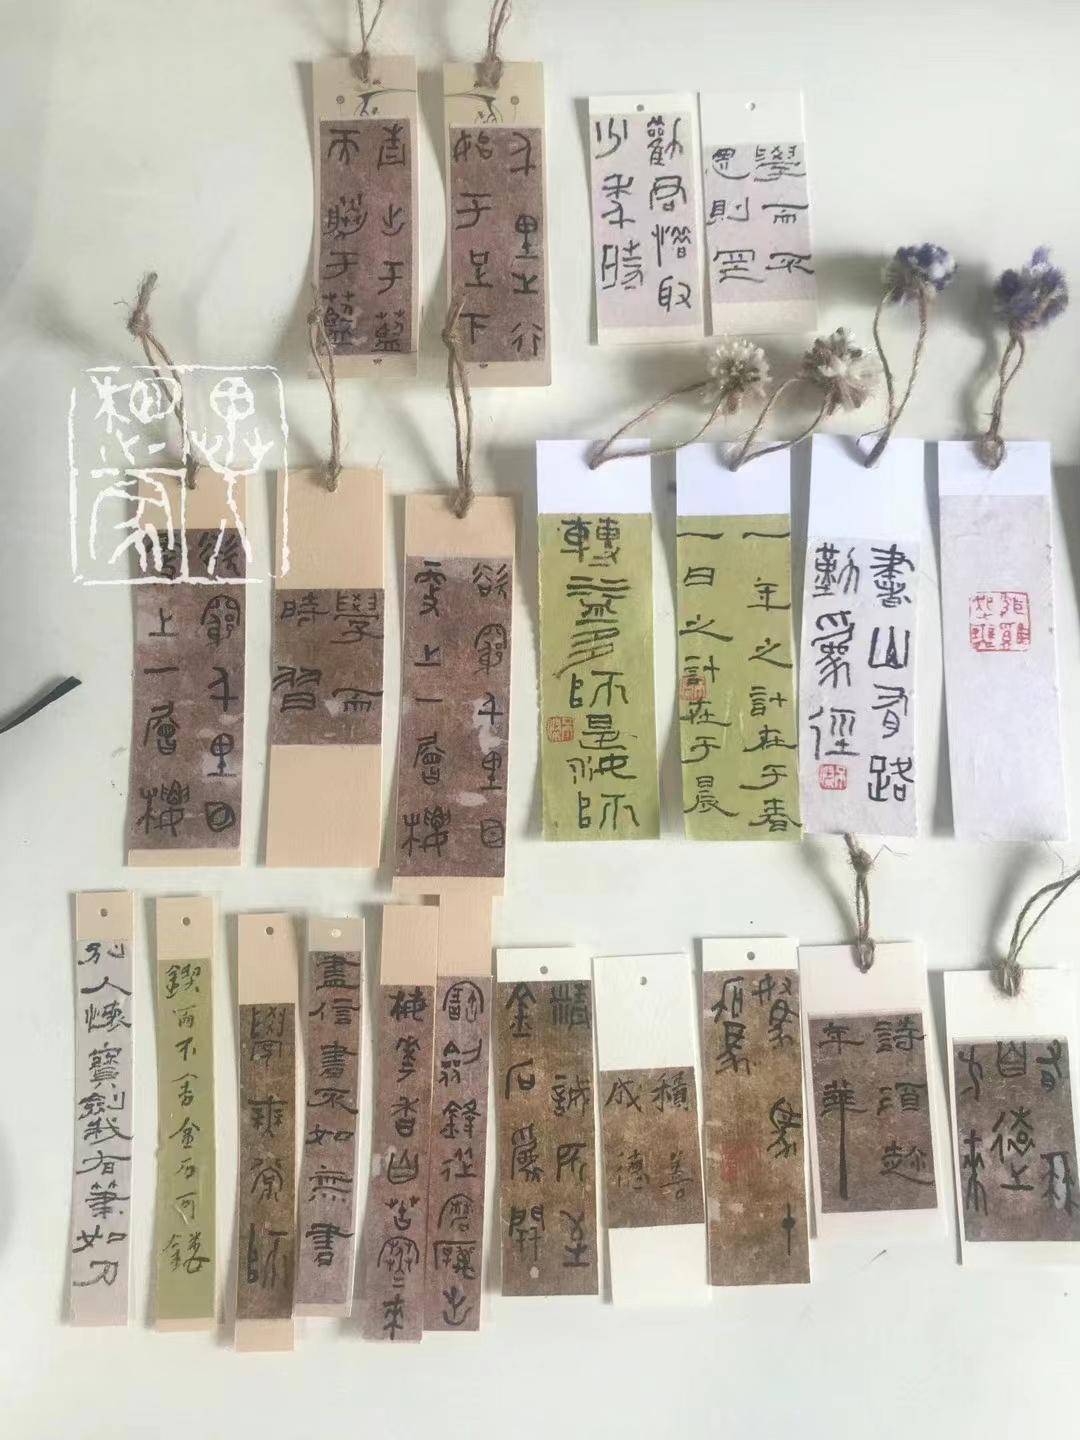 青出于藍
而勝于藍
千里之行
始于足下
勸君惜取
少年時
學而不
思則罔
欲窮千里目
更上一層樓
學而
時習
欲窮千里目
更上一層樓
轉益多師是汝師
一年之計在于春
一日之計在于晨
書山有路
勤爲徑
別人懷寶劍我有筆如刀
鍥而不舍金石可鏤
盡信書不如無書
梅花香自苦寒來
寶劍鋒從磨礪出
精誠所至
金石爲開
積善
成德
詩酒趁
年華